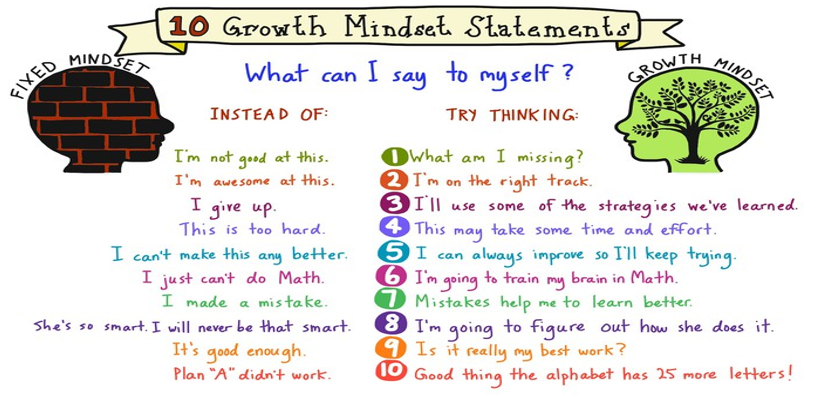 10 Growth Mindset Statements
FIXED MINDSET
GROWTH MINDSET
What can I say to myself?
INSTEAD OF: TRY THINKING:
I'm not good at this. 1 What am I missing?
I'm awesome at this. 2 I'm on the right track.
I give up. 3 I'll use some of the strategies we've learned.
This is too hard. 4 This may take some time and effort.
I can't make this any better. 5 I can always improve so I'll keep trying.
I just can't do Math. 6 I'm going to train my brain in Math.
I made a mistake. 7 Mistakes help me to learn better.
She's so smart. I will never be that smart. 8 I'm going to figure out how she does it.
It's good enough. 9 Is it really my best work?
Plan "A" didn't work. 10 Good thing the alphabet has 25 more letters!